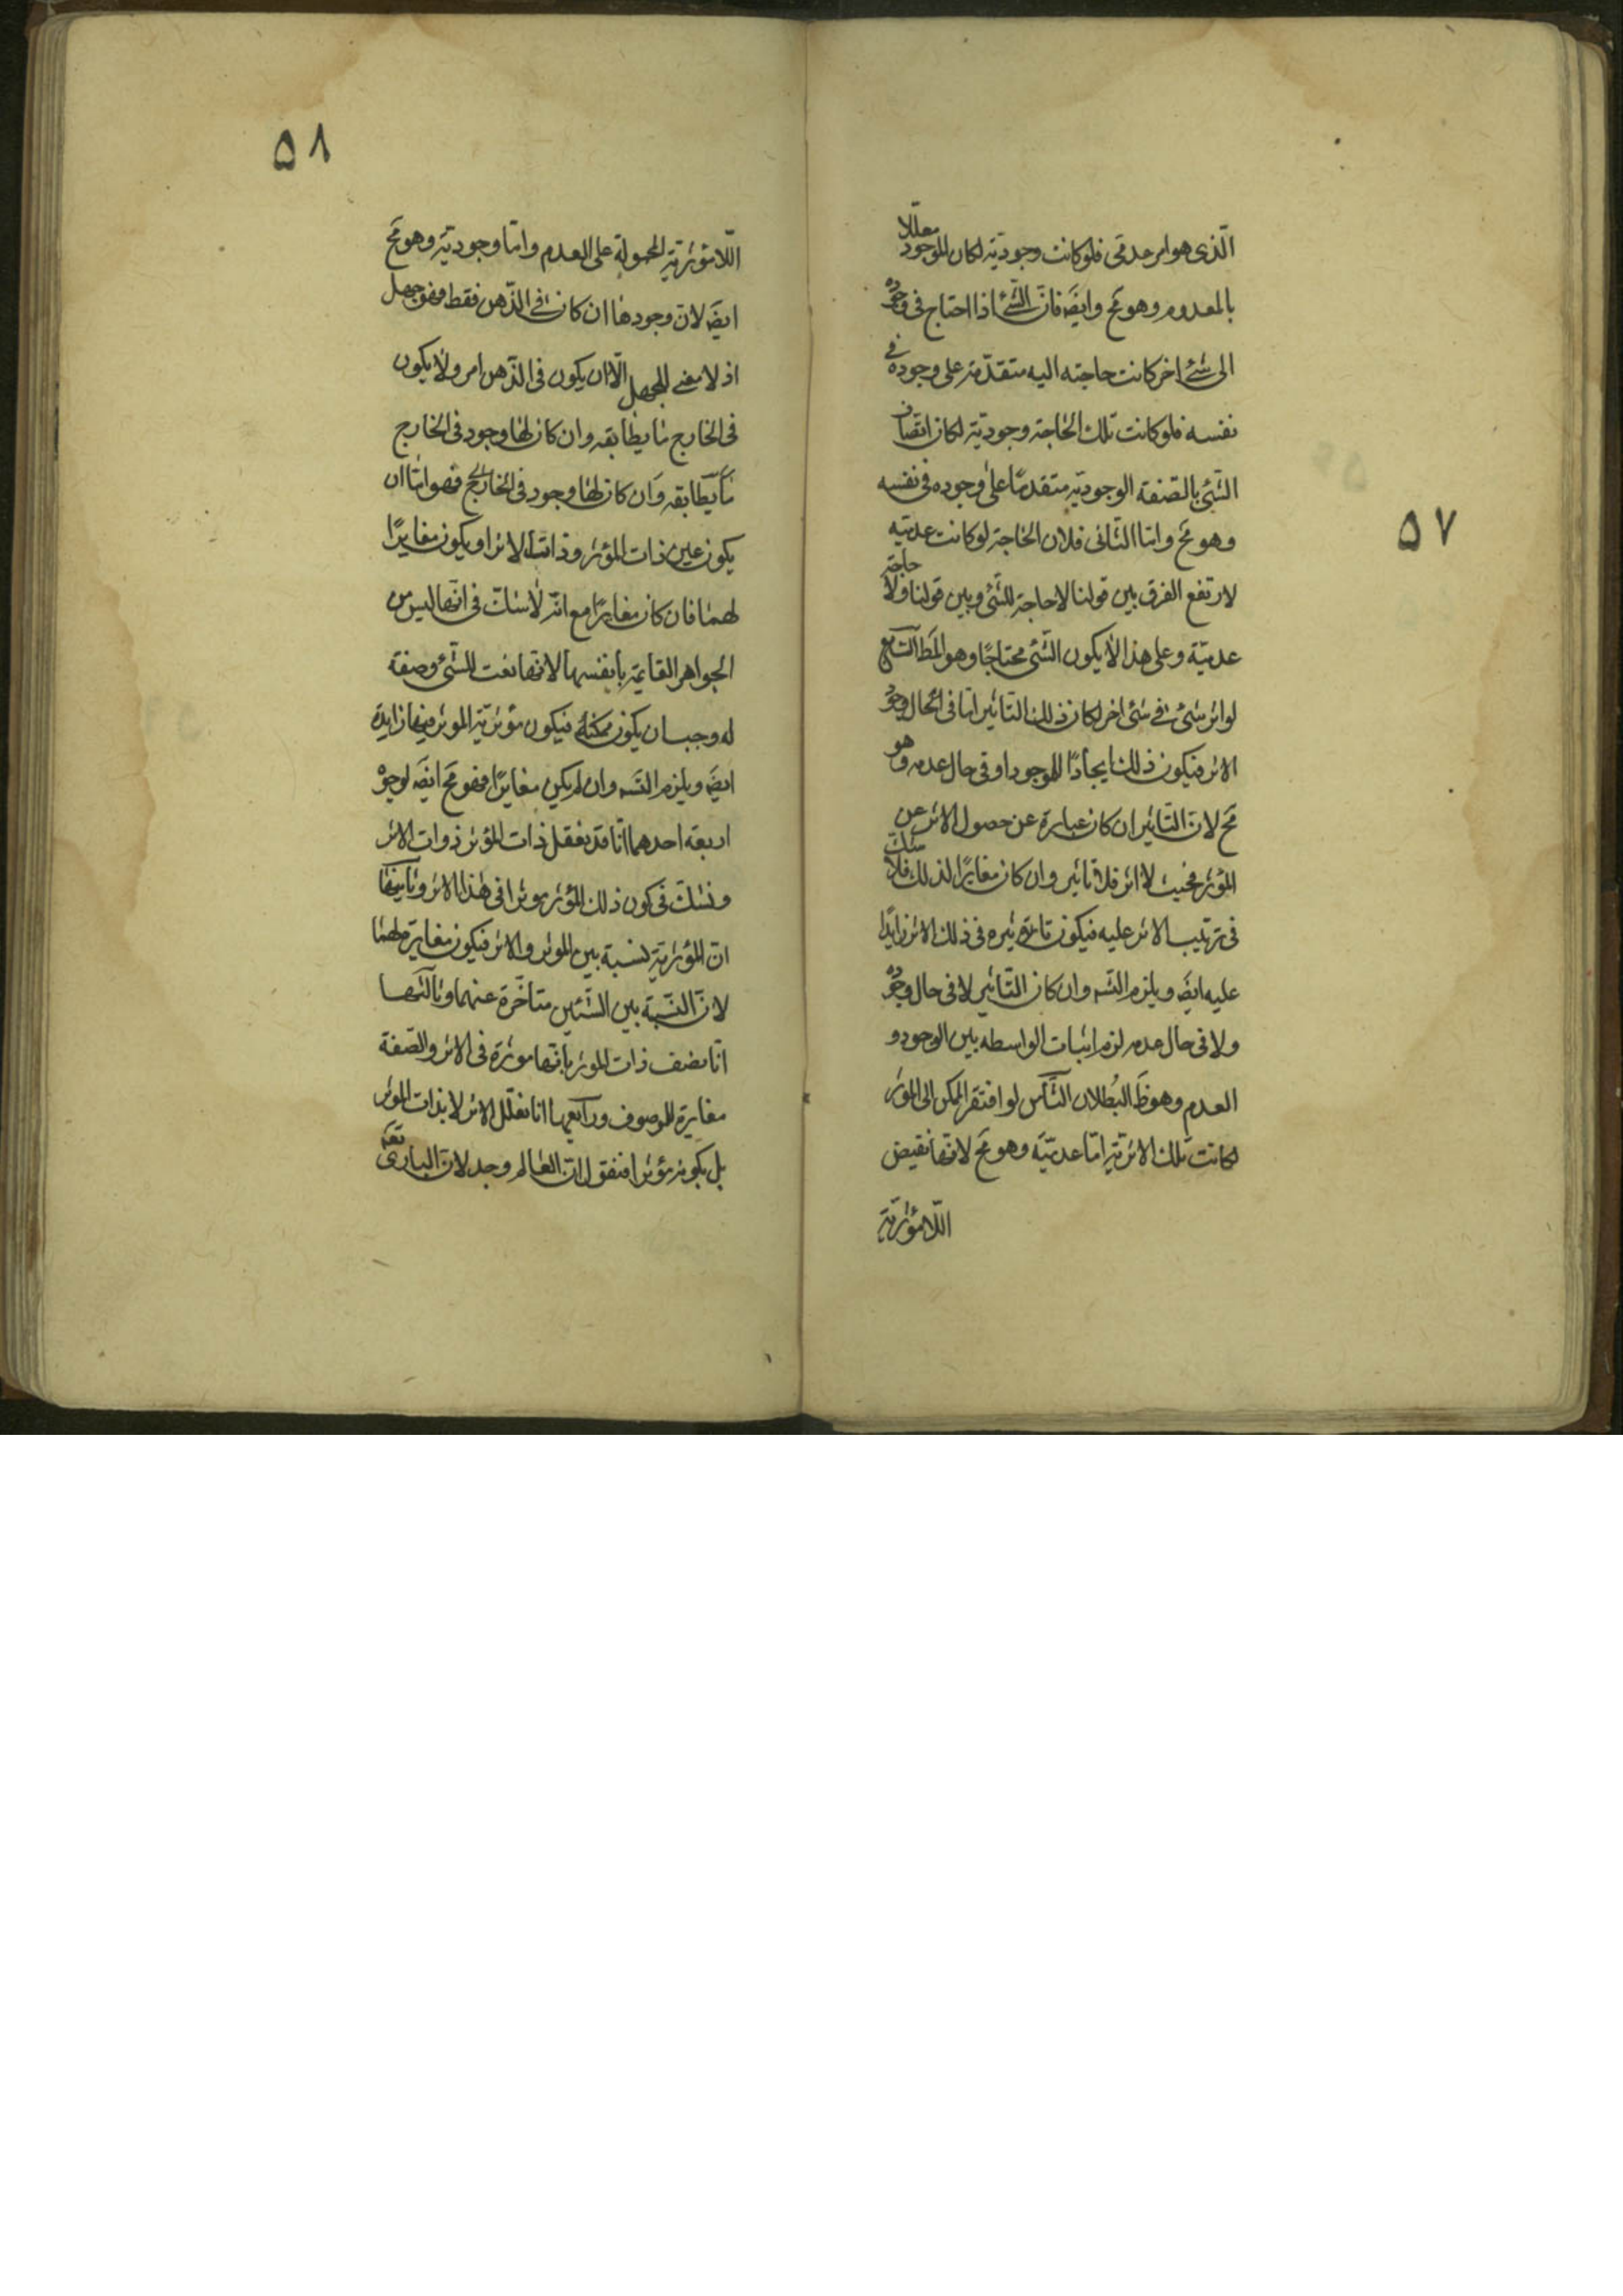 ۵۷
الّذى هو امر عدمى فلو كانت وجوديّة لكان الموجود معلّلا
بالمعدوم وهو مح وايضَ فانّ الشّئ اذا احتاج فى وجوده
الى شئ اخر كانت حاجته اليه متقدّمة على وجوده فى
نفسه فلو كانت تلك الحاجة وجوديّة لكان اتصاف
الشّئ بالصّفة الوجوديّة متقدمًا على وجوده فى نفسه
وهو مح وامّا الثّانى فلان الحاجة لو كانت عدميّة
لارتفع الفرق بين قولنا لا حاجة للشّئ وبين قولنا حاجة
عدميّة وعلى هذا لا يكون الشّئ محتاجًا وهو المط السّابع
لو اثر شئ فى شئ اخر لكان ذلك التاثير امّا فى الحال وجود
الاثر فيكون ذلك ايجادًا للموجود او فى حال عدمه وهو
مح لانّ التّاثير ان كان عبارة عن حصول الاثر عن
المؤثر فحيث لا اثر فلا تاثير وان كان مغايرًا لذلك فلا شك
فى ترتيب الاثر عليه فيكون تاثيره فى ذلك الاثر زايدًا
عليه ايضَ ويلزم التسَ وان كان التّاثير لا فى حال وجوده
ولا فى حال عدمه لزم اثبات الواسطه بين الوجود و
العدم وهو ظَ البُطلان الثّامن لو افتقر الممكن الى المؤثر
لكانت تلك الاثريّة امّا عدميّة وهو مح لانّها نقيض
اللّامؤثريّة
۵۸
اللّامؤثريّة المحمولة على العدم وامّا وجوديّة وهو مح
ايضَ لانّ وجودها ان كان فى الذّهن فقط فهو جهل
اذ لا معنى للجهل الّا ان يكون فى الذّهن امر ولا يكون
فى الخارج ما يطابقه وان كان لها وجود فى الخارج
ما يطابقه وان كان لها وجود فى الخارج فهو امّا ان
يكون عين ذات المؤثر وذات الاثر او يكون مغايرًا
لهما فان كان مغايرًا مع انّه لا شكّ فى انّها ليس من
الجواهر القايمة بانفسها لانّها نعت للشّئ وصفة
له وجب ان يكون ممكنة فيكون مؤثريّة الموثر فيها زايدة
ايضَ ويلزم التسَ وان لم يكن مغايرًا فهو مح ايضَ لوجوه
اربعة احدهما انّا قد نعقل ذات المؤثر ذوات الاثر
ونشكّ فى كون ذلك المؤثر موثرا فى هذا الاثر وثانيها
انّ المؤثريّة نسبة بين الموثر والاثر فيكون مغايرة لهما
لانّ النّسبة بين الشّئين متاخّرة عنهما وثالثها
انّا نصف ذات الموثر بانّها موثرة فى الاثر والصّفة
مغايرة للموصوف ورابعها انّا نعلّل الاثر لا بذات الموثر
بل بكونه مؤثرا فنقول انّ العالم وجد لانّ البارى تعَ